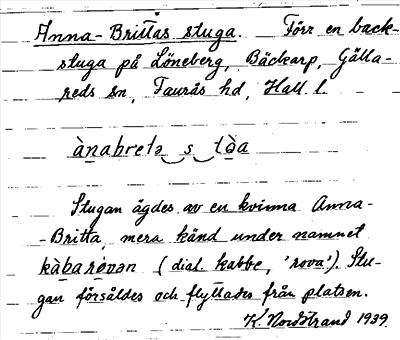 Anna-Brittas stuga. Förr en back-
stuga på Löneberg, Bäckarp, Gälla-
reds sn, Faurås hd, Hall. l.
ànabretə s tòa
Stugan ägdes av en kvinna Anna-
-Britta, mera känd under namnet
kàbaròvan (dial. kabbe, 'rova'). Stu-
gan försåldes och flyttades från platsen.
K. Nordstrand 1939.